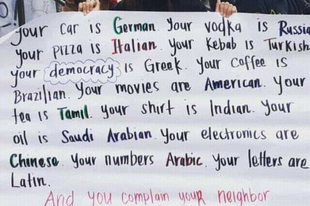 your car is German. your vodka is Russia
your pizza is Italian. your Kebab is Turkish
your democracy is Greek. your coffee is
Brazilian. your movies are American. your
tea is Tamil. your shirt is Indian. your
oil is Saudi Arabian. your electronics are
Chinese. your numbers Arabic. your letters are
Latin.
And you complain your neighbor